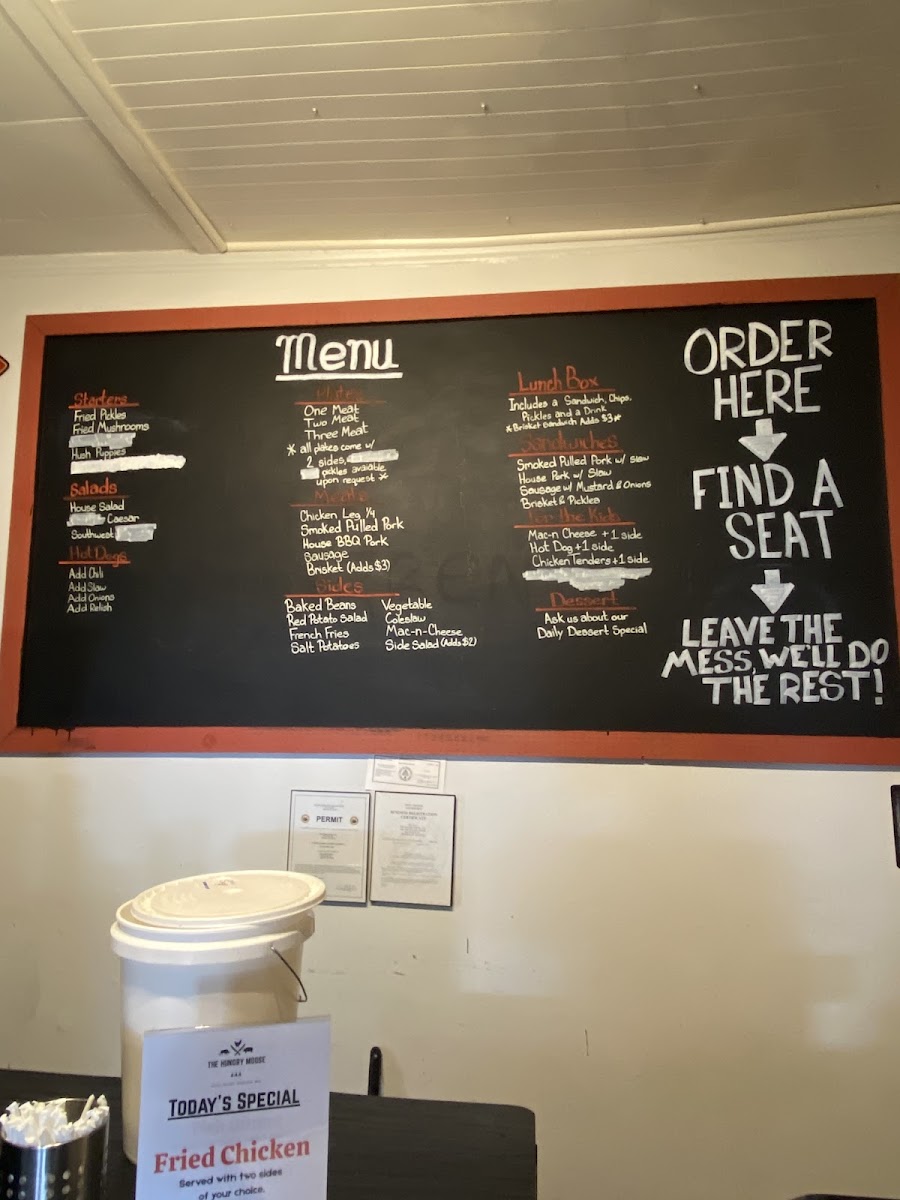 Menu
Starters
Fried Pickles
Fried Mushrooms
Hush Puppies
Salads
House Salad
Caesar
Southwest
Hot Dogs
Add Chili
Add Slaw
Add Onions
Add Relish
Plates
One Meat
Two Meat
Three Meat
* all plates come w/
2 sides,
pickles available
upon request *
Meats
Chicken Leg 1/4
Smoked Pulled Pork
House BBQ Pork
Sausage
Brisket (Adds $3)
Sides
Baked Beans
Red Potato Salad
French Fries
Salt Potatoes
Vegetable
Coleslaw
Mac-n-Cheese
Side Salad (Adds $2)
Lunch Box
Includes a Sandwich, Chips,
Pickles and a Drink
*Brisket Sandwich Adds $3*
Sandwiches
Smoked Pulled Pork w/ Slaw
House Pork w/ Slaw
Sausage w/ Mustard & Onions
Brisket & Pickles
For the Kids
Mac-n Cheese + 1 side
Hot Dog + 1 side
Chicken Tenders + 1 side
Dessert
Ask us about our
Daily Dessert Special
ORDER
HERE
FIND A
SEAT
LEAVE THE
MESS, WE'LL DO
THE REST!
PERMIT
THE HUNGRY MOOSE
TODAY'S SPECIAL
Fried Chicken
Served with two sides
of your choice.